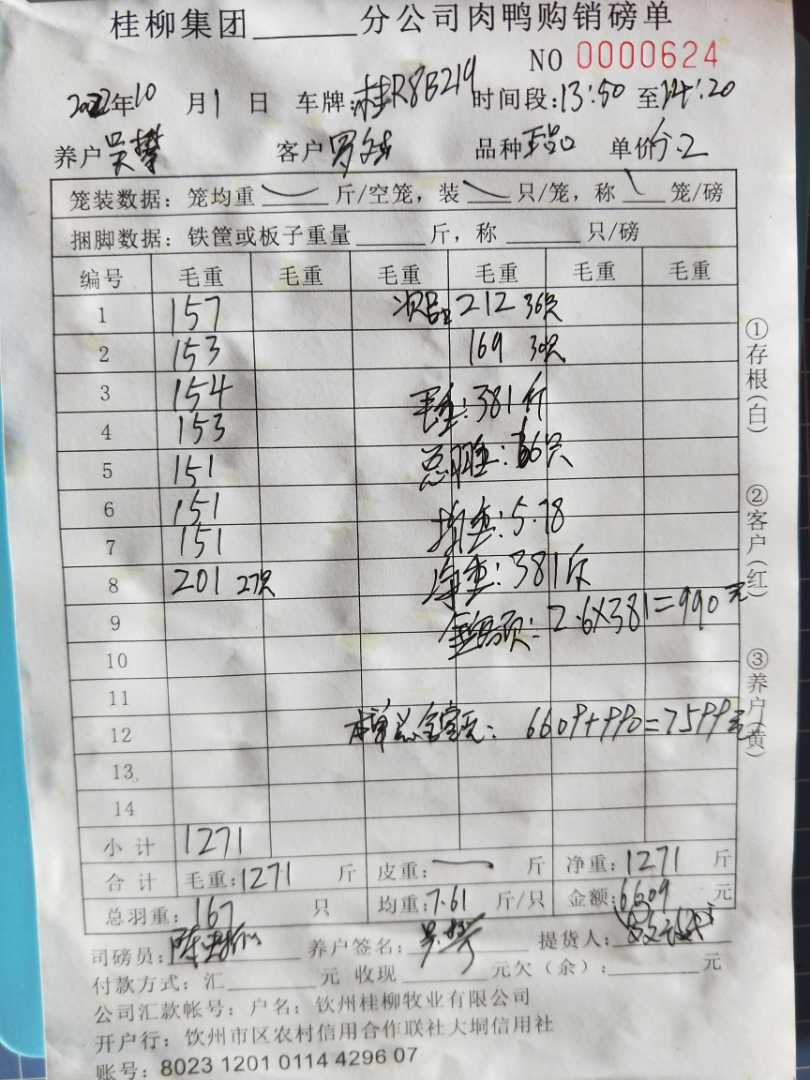 桂柳集团______分公司肉鸭购销磅单
NO 0000624
2022年10月1日 车牌:桂R8B219 时间段:13:50至14:20
养户吴攀 客户罗 品种 单价5.2
笼装数据：笼均重____斤/空笼，装____只/笼，称____笼/磅
捆脚数据：铁筐或板子重量____斤，称____只/磅
编号 毛重 毛重 毛重 毛重 毛重 毛重
1 157 次品: 212 36只
2 153 169 30只
3 154 毛重:381斤
4 153 总羽重:66只
5 151
6 151 均重:5.78
7 151
8 201 27只 净重:381斤
9 金额:2.6X381=990元
10
11
12 本单总金额: 6609+990=7599元
13
14
小计 1271
合计 毛重:1271斤 皮重: 斤 净重:1271斤
总羽重:167只 均重:7.61斤/只 金额:6609元
司磅员: 养户签名: 提货人:
付款方式：汇____元 收现____元欠（余）:____元
公司汇款帐号：户名：钦州桂柳牧业有限公司
开户行：钦州市区农村信用合作联社大垌信用社
账号：8023 1201 0114 4296 07
①存根(白)
②客户(红)
③养户(黄)